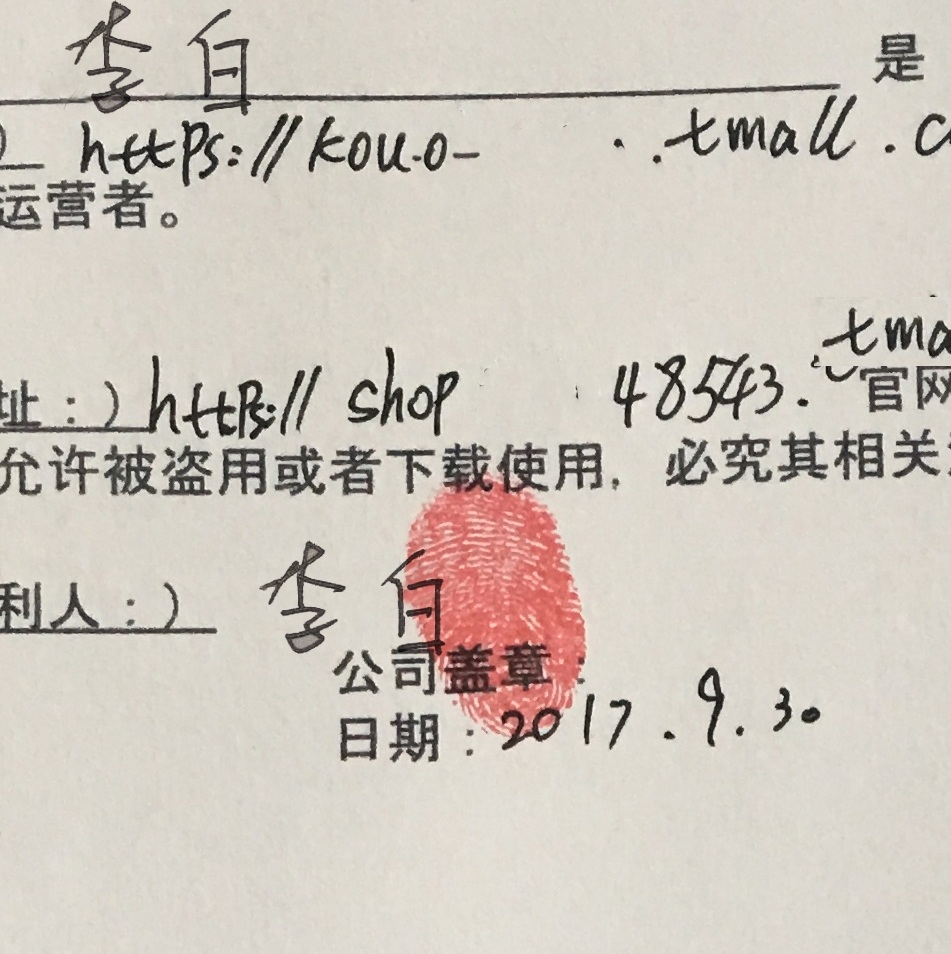 李白 是
https://kou.o- ..tmall.c
运营者。
tma
址：）https:// shop 48543. 官网
允许被盗用或者下载使用，必究其相关
利人：） 李白
公司盖章：
日期：2017.9.30